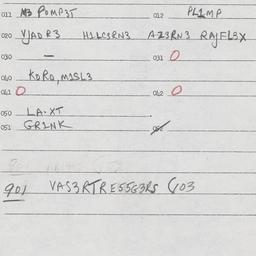 011 M3 POMP3T 012 PL1MP
020 VJADR3 H1LCSRN3 AZ3RN3 RAJFL3X
030 — 031 O
040 KORO, M1SL3
041 O 042 O
050 LA-XT
051 GR1NK 052
901 VAS3RTRE55G3RS G03